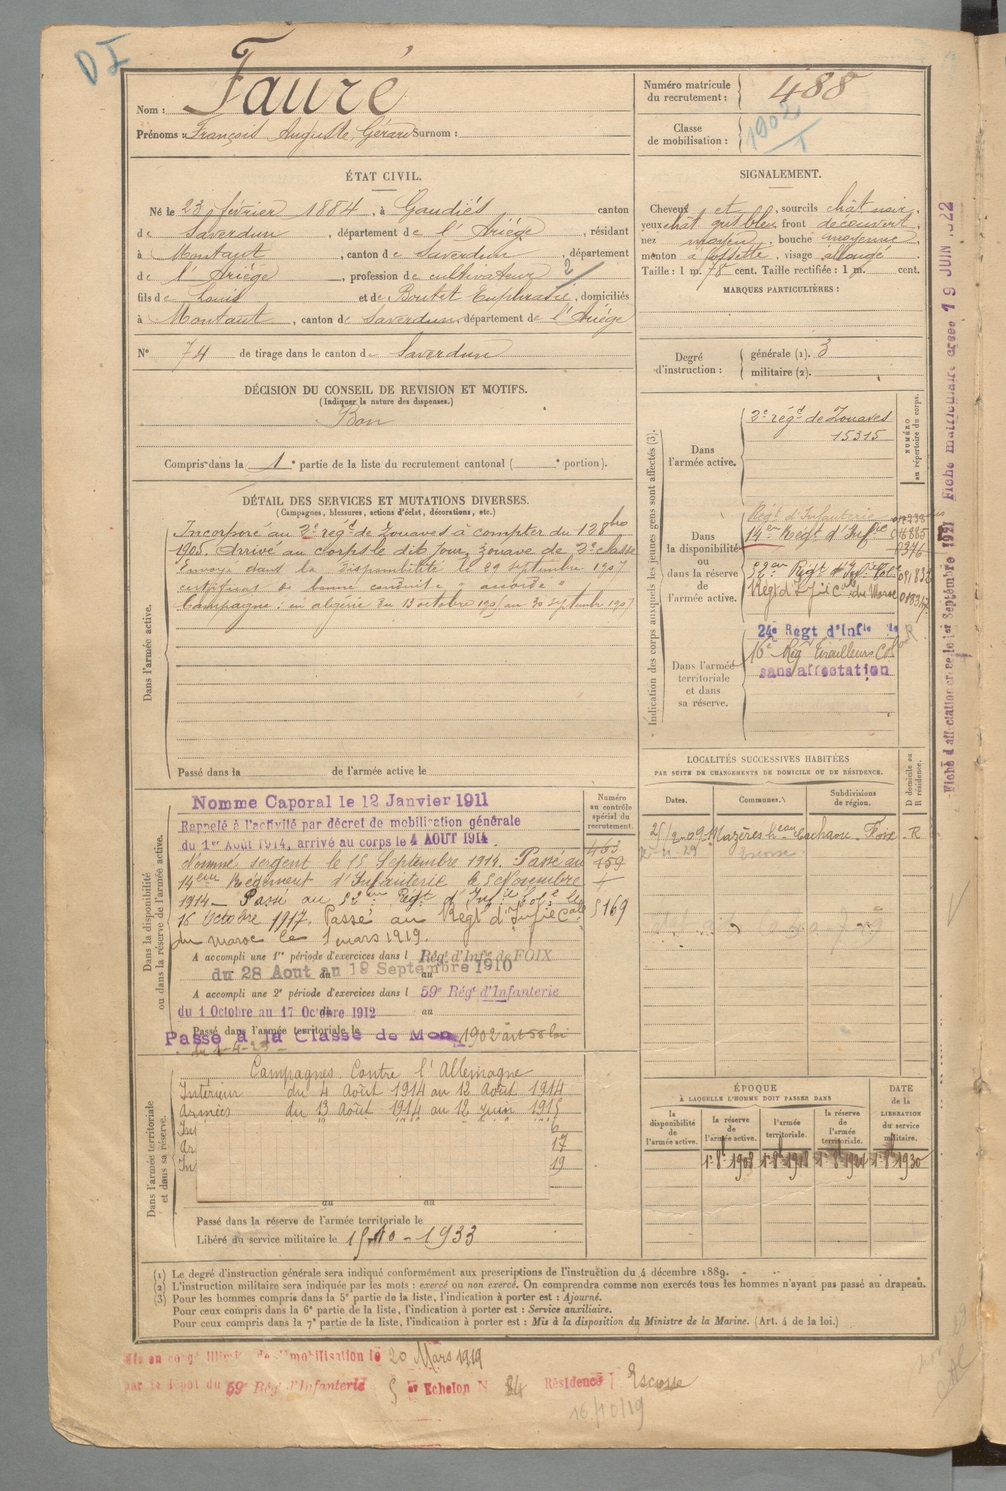 DI
Nom : Fauré
Prénoms : François Auguste Gérard Surnom :
Numéro matricule du recrutement : 488
Classe de mobilisation : 1902
ÉTAT CIVIL.
Né le 23 février 1884, à Gaudiès canton
de Saverdun, département de l'Ariège, résidant
à Montaut, canton de Saverdun, département
de l'Ariège, profession de cultivateur 2/
fils de Louis et de Boutet Euphrasie, domiciliés
à Montaut, canton de Saverdun, département de l'Ariège
N° 74 de tirage dans le canton de Saverdun
SIGNALEMENT.
Cheveux et, sourcils chât noir,
yeux chât gris bleu, front découvert,
nez moyen, bouche moyenne,
menton à fossette, visage allongé
Taille : 1 m. 78 cent. Taille rectifiée : 1 m. cent.
MARQUES PARTICULIÈRES :
Degré d'instruction : générale (1). 3
militaire (2).
DÉCISION DU CONSEIL DE REVISION ET MOTIFS.
(Indiquer la nature des dispenses.)
Bon
Compris dans la 1e partie de la liste du recrutement cantonal ( e portion).
DÉTAIL DES SERVICES ET MUTATIONS DIVERSES.
(Campagnes, blessures, actions d'éclat, décorations, etc.)
Dans l'armée active.
Incorporé au 2e régt de Zouaves à compter du 12 8bre
1905. Arrivé au corps le dit jour, zouave de 2e classe
Envoyé dans la disponibilité le 29 septembre 1907
certificat de bonne conduite "accordé"
Campagne : en algérie du 13 octobre 1905 au 30 septembre 1907
Passé dans la de l'armée active le
Indication des corps auxquels les jeunes gens sont affectés (3).
NUMÉRO au répertoire du corps.
Dans l'armée active.
2e régt de Zouaves
15315
Dans la disponibilité ou dans la réserve de l'armée active.
Régt d'Infanterie
14e Régt d'Infrie
52e Régt d'Infie Cole
Régt d'Infie Cale du Maroc
Dans l'armée territoriale et dans sa réserve.
24e Régt d'Infie
16e Rég Tirailleurs Col
sans affectation
LOCALITÉS SUCCESSIVES HABITÉES
PAR SUITE DE CHANGEMENTS DE DOMICILE OU DE RÉSIDENCE.
Dates. Communes. Subdivisions de région. D domicile ou R résidence.
25/2-09 Mazères Foix R
Escosse
Dans la disponibilité ou dans la réserve de l'armée active.
Numéro au contrôle spécial du recrutement.
Nomme Caporal le 12 Janvier 1911
Rappelé à l'activité par décret de mobilisation générale
du 1er Août 1914, arrivé au corps le 4 AOUT 1914
Nommé sergent le 15 Septembre 1914. Passé au
14ème Régiment d'Infanterie le 5 Novembre
1914 - Passé au 52ème Régt d'Infie Cole le
16 Octobre 1917. Passé au Régt d'Infie Cale
du maroc le 1 mars 1919.
5169
A accompli une 1re période d'exercices dans l Régt d'Infie de FOIX
du 28 Aout au 19 Septembre 1910
A accompli une 2e période d'exercices dans l 59e Régt d'Infanterie
du 1 Octobre au 17 Octobre 1912
Passé dans l'armée territoriale le
Passé à la Classe de Mon 1902 art 58 loi
du 1-4-23
Dans l'armée territoriale et dans sa réserve.
Campagnes Contre l'Allemagne
Intérieur du 4 Août 1914 au 12 Août 1914
Armées du 13 Août 1914 au 12 juin 1915
In 6
Ar 17
In 19
au au
Passé dans la réserve de l'armée territoriale le
Libéré du service militaire le 15-10-1933
ÉPOQUE
À LAQUELLE L'HOMME DOIT PASSER DANS
la disponibilité de l'armée active.
la réserve de l'armée active.
l'armée territoriale.
la réserve de l'armée territoriale.
DATE de la LIBÉRATION du service militaire.
1r 8e 1908 1r 8e 1918 1r 8e 1924 1r 8e 1930
(1) Le degré d'instruction générale sera indiqué conformément aux prescriptions de l'instruction du 4 décembre 1889.
(2) L'instruction militaire sera indiquée par les mots : exercé ou non exercé. On comprendra comme non exercés tous les hommes n'ayant pas passé au drapeau.
(3) Pour les hommes compris dans la 5e partie de la liste, l'indication à porter est : Ajourné.
Pour ceux compris dans la 6e partie de la liste, l'indication à porter est : Service auxiliaire.
Pour ceux compris dans la 7e partie de la liste, l'indication à porter est : Mis à la disposition du Ministre de la Marine. (Art. 4 de la loi.)
Mis en congé illimité de démobilisation le 20 Mars 1919
par le dépôt du 59e Régt d'Infanterie 5 Echelon N° 84 Résidence Escosse
16/10/19